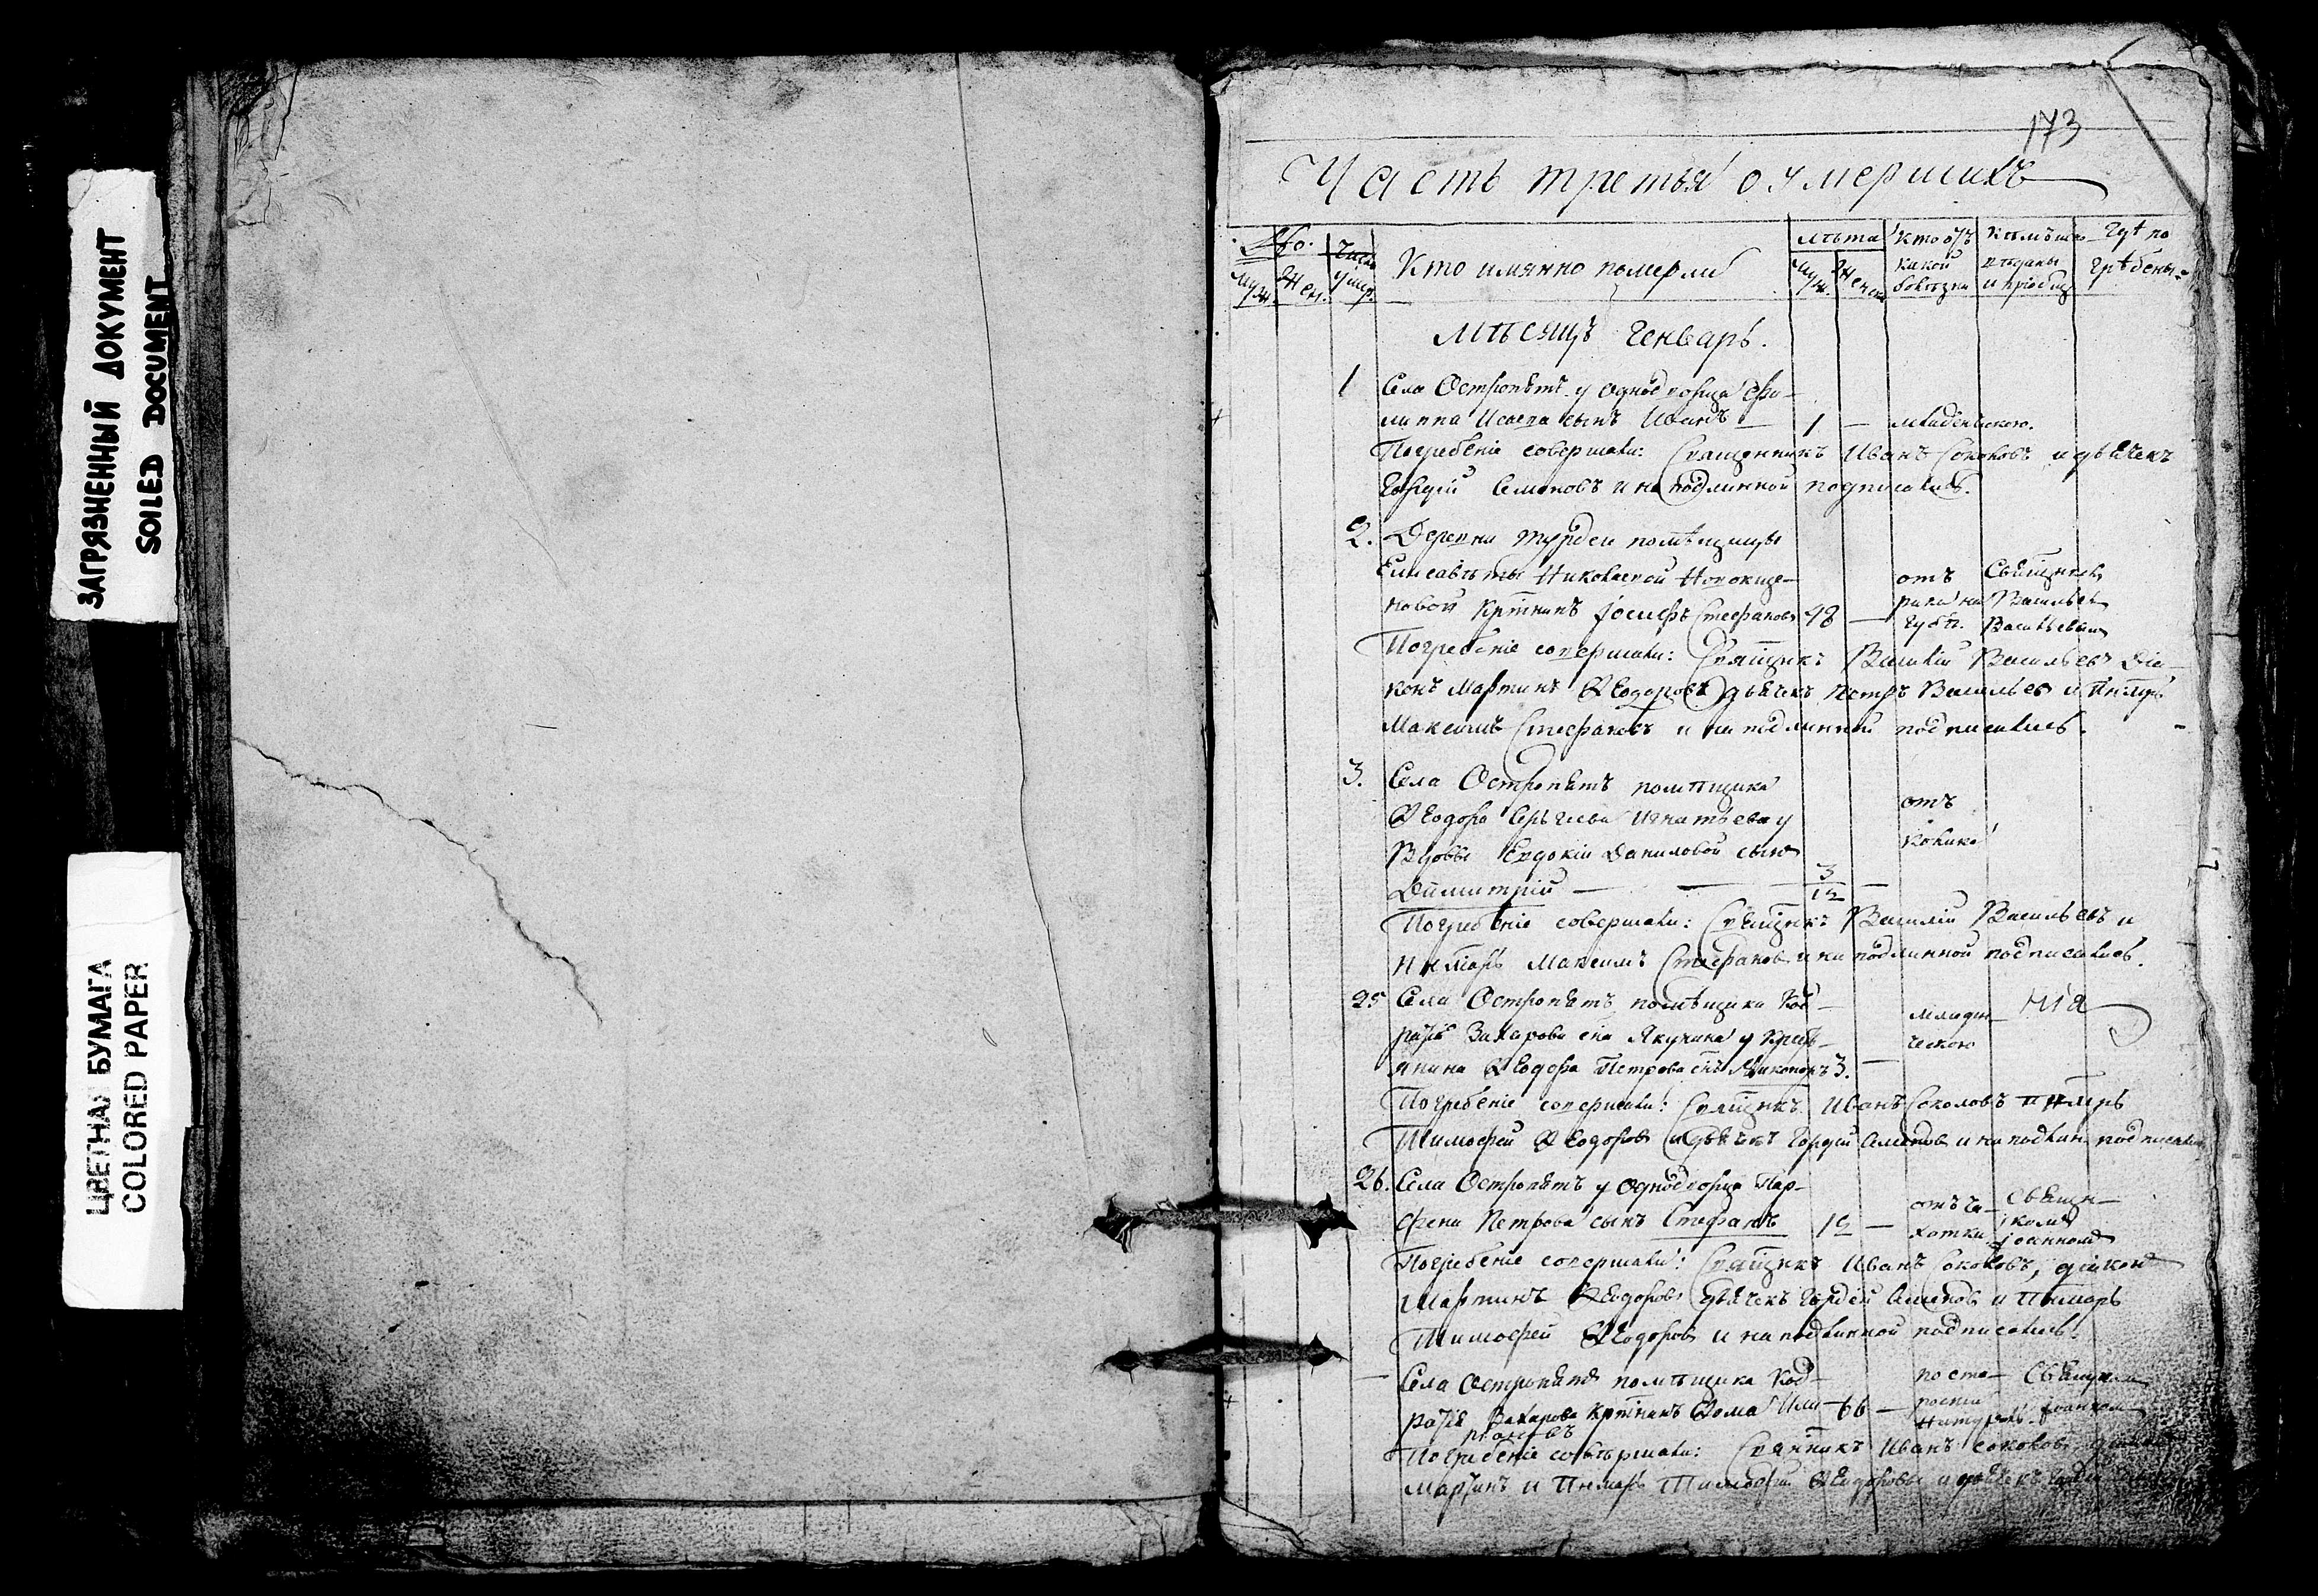 ЗАГРЯЗНЕННЫЙ ДОКУМЕНТ
SOILED DOCUMENT
ЦВЕТНАЯ БУМАГА
COLORED PAPER
173
Часть третья о умершихъ
муж. жен. число умер.
Кто имянно померли
лѣта муж. женск.
кто отъ какой болѣзни
кѣмъ исповѣданы и приобщ
Гдѣ погребены
Мѣсяцъ Генварь.
1 Села Остропятъ у однодворца Фи-
липпа Исаева сынъ Иванъ 1 — младенческою.
Погребеніе совершали: Священникъ Иванъ Соколовъ и дьячекъ
Гордій Семеновъ и на подлинной подписались.
2. Деревни Турдеи помѣщицы
Елисаветы Николаевой Новокще-
новой кртнинъ Іосифъ Стефановъ 48 — отъ рака на губѣ. Свящнкомъ Васильемъ Васильевымъ
Погребеніе совершали: Свящнкъ Василій Васильевъ Діа-
конъ Мартинъ Ѳеодоровъ дьячекъ Петръ Васильевъ и Пнмрь
Максимъ Стефановъ и на подлинной подписались.
3. Села Остропятъ помѣщика
Ѳеодора Сергѣева Игнатьева у
Вдовы Евдокіи Даниловой сынъ
Димитрій — 3/12 — отъ колика
Погребеніе совершали: Свящнкъ Василій Васильевъ и
Пнмарь Максимъ Стефановъ и на подлинной подписались.
25 Села Остропятъ помѣщика Код-
рата Захарова сна Якунина у крест-
янина Ѳеодора Петрова снъ Никоноръ 3. — младенческою
Погребеніе совершали: Свящнкъ Иванъ Соколовъ Пнмрь
Тимофей Ѳеодоровъ и дьячекъ Гордій Семеновъ и на подлин. подписались
26. Села Остропятъ у однодворца Пар-
фена Петрова сынъ Стефанъ 15 — отъ чахотки Свящнкомъ Іоанномъ
Погребеніе совершали: Свящнкъ Иванъ Соколовъ, діаконъ
Мартинъ Ѳеодоровъ дьячекъ Гордій Семеновъ и Пнмарь
Тимофей Ѳеодоровъ и на подлинной подписались.
— Села Остропятъ помѣщика Код-
рата Захарова кртнинъ Ѳома 66 — по старости натуральн. Свящнкомъ Іоанномъ
Погребеніе совершали: Священникъ Иванъ Соколовъ, діаконъ
Мартинъ и Пнмарь Тимофей Ѳеодоровы и дьячекъ Гордій